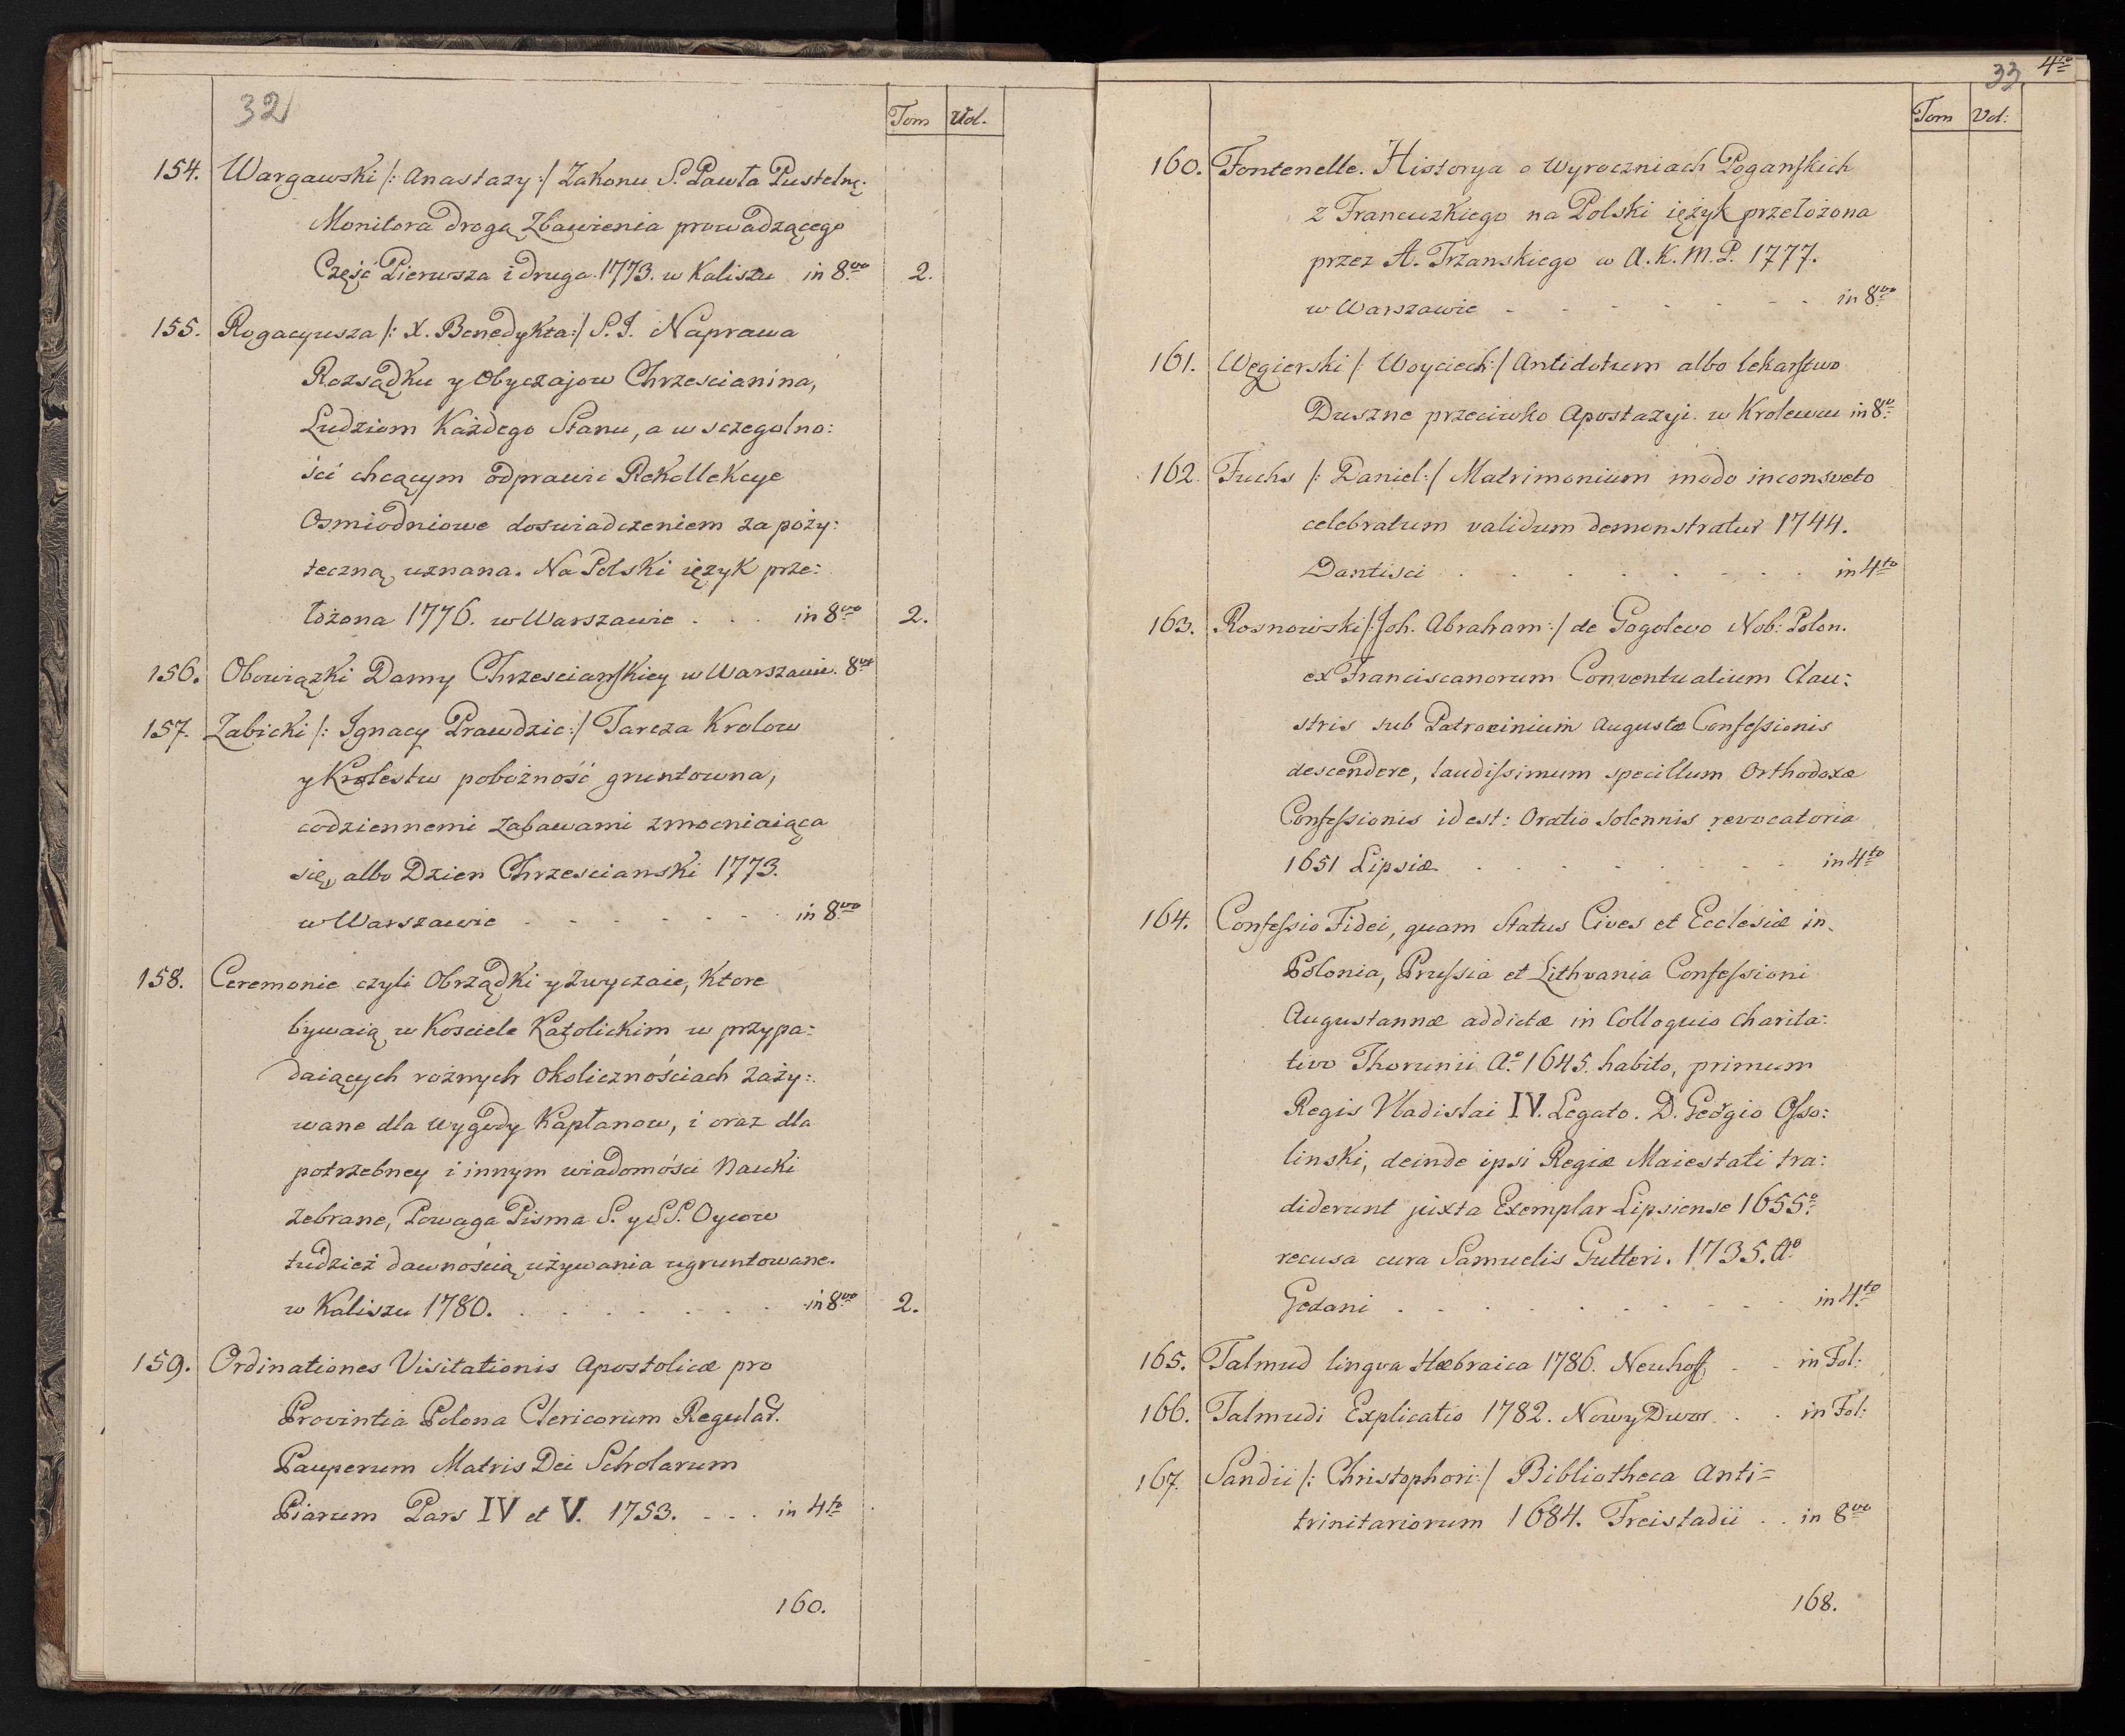 32
Tom Vol.
154. Wargawski /: Anastazy :/ Zakonu S. Pawła Pustelnę.
Monitora drogą Zbawienia prowadzącego
Część Pierwsza i druga. 1773. w Kaliszu in 8vo 2.
155. Rogacyusza /: X. Benedykta :/ S. J. Naprawa
Rozsądku y Obyczajow Chrzescianina,
Ludziom Każdego Stanu, a w sczegolno:
ści chcącym odprawic Rekollekcye
Osmiodniowe doswiadczeniem za poży:
teczną uznana. Na Polski ięzyk prze:
łożona 1776. w Warszawie . . . in 8vo 2.
156. Obowiązki Damy Chrzescianſkiey w Warszawie. 8vo
157. Zabicki /: Ignacy Prawdzic :/ Tarcza Krolow
y Krolestw pobożność gruntowna,
codziennemi zabawami zmocniaiąca
się, albo Dzien Chrzescianski 1773.
w Warszawie - - - - - - in 8vo
158. Ceremonie czyli Obrządki y Zwyczaie, Ktore
bywaią w Kosciele Katolickim w przypa:
daiących rożnych Okolicznościach zaży:
wane dla wygody Kapłanow, i oraz dla
potrzebney i innym wiadomości Nauki
zebrane, Powaga Pisma S. y SS. Oycow
tudzież dawnością używania ugruntowane.
w Kaliszu 1780. . . . . . . . in 8vo 2.
159. Ordinationes Visitationis Apostolicæ pro
Provintia Polona Clericorum Regular.
Pauperum Matris Dei Scholarum
Piarum Pars IV et V. 1753. - - . in 4to
160.
33 4to
Tom Vol:
160. Fontenelle. Historya o Wyroczniach Poganſkich
z Francuzkiego na Polski ięzyk przełożona
przez A. Trzanskiego w A. K. M. P. 1777.
w Warszawie - - - - - - - in 8vo
161. Węgierski /: Woyciech :/ Antidotum albo lekarſtwo
Duszne przeciwko Apostazyi. w Krolewcu in 8o
162. Fuchs /: Daniel :/ Matrimonium modo inconsveto
celebratum validum demonstratur 1744.
Dantisci . . . . . . . in 4to
163. Rosnowski /: Joh. Abraham :/ de Gogolevo Nob: Polon.
ex Franciscanorum Conventualium Clau:
stris sub Patrocinium Augustæ Confeſsionis
descendere, laudiſsimum specillum Orthodoxæ
Confeſsionis id est: Oratio solennis revocatoria
1651 Lipsiæ . . . . . . . in 4to
164. Confeſsio Fidei, quam Status Cives et Ecclesiæ in
Polonia, Pruſsia et Lithvania Confeſsioni
Augustannæ addictæ in Colloquio Charita:
tivo Thorunii Ao. 1645. habito, primum
Regis Vladislai IV. Legato. D. Georgio Oſso:
linski, deinde ipsi Regiæ Maiestati tra:
diderunt juxta Exemplar Lipsiense 1655o
recusa cura Samuelis Gutteri. 1735. Ao
Gedani - - - - - - - - - in 4to
165. Talmud lingva Hæbraica 1786. Neuhoff - - in Fol:
166. Talmudi Explicatio 1782. Nowy Dwor . . in Fol:
167. Sandii /: Christophori :/ Bibliotheca Anti=
trinitariorum 1684. Freistadii . . in 8vo
168.